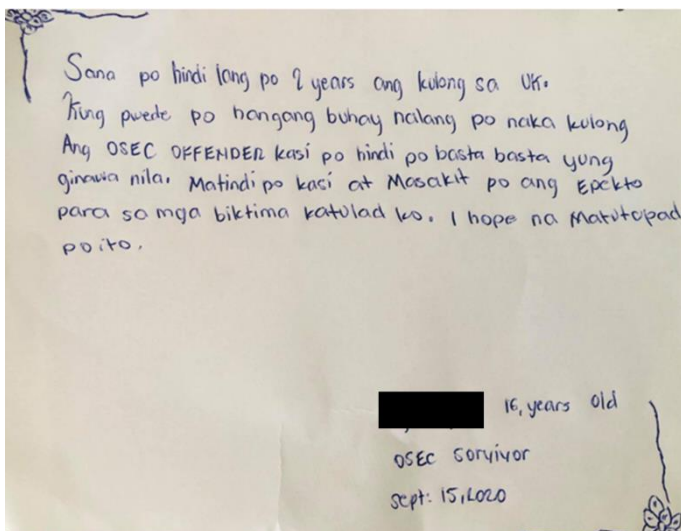 Sana po hindi lang po 2 years ang kulong sa UK.
Kung pwede po hangang buhay nalang po naka kulong
Ang OSEC OFFENDER kasi po hindi po basta basta yung
ginawa nila. Matindi po kasi at Masakit po ang Epekto
para sa mga biktima katulad ko. I hope na Matutupad
po ito.
16, years old
OSEC Sorvivor
sept: 15, 2020